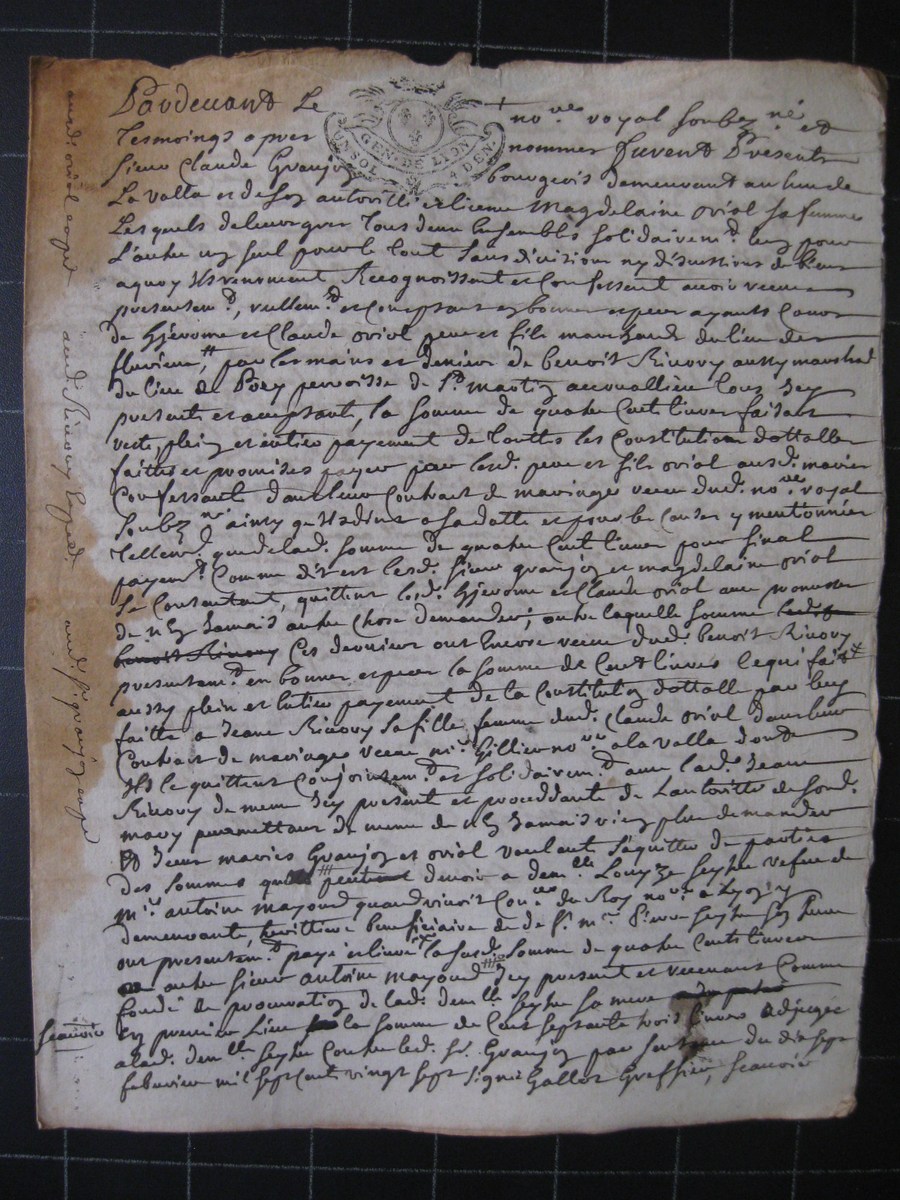 Pardevant Le no.re royal soubz.né et
Tesmoings apres nommes furent Presents
GEN. DE LION
UN SOL 4 DEN
Sieur Claude Granjon bourgeois demeurant au lieu de
La valla et de son autorité et licence Magdelaine oriol sa femme
Lesquels de leur gré Tous deux Ensembles solidairem.t lun pour
L'autre un seul pour le tout sans division ny discussions de biens
aquoy ils renoncent Recognoissent et Confessent avoir receu
presentem.t, reellem.t et comptant en bonnes especes ayants Cours
de Hjerome et Claude oriol pere et fils marchands du lieu des
flurieux, par les mains et deniers de benoit Rivory aussy marchand
du lieu de Poey parroisse de S.t martin acouallieu tous Icy
present et acceptants, la somme de quatre Cent livres faisant
reste, plein et entier payement de touttes les Constitutions dottalles
faittes et promises payer par lesd. pere et fils oriol ausd. maries
Confessants dans leur Contract de mariage receu dud. no.re royal
Soubz.né ainsy quil a dit a sa datte et pour les Causes y mentionnées
Tellem.t que de lad. somme de quatre Cent livres pour final
payem.t Comme dit est lesd. sieur granjon et magdelaine oriol
Se Contentent, quittent lesd. Hjerome et Claude oriol avec promesse
de n'en Jamais autre chose demander; outre laquelle somme
benoit Rivory Ces derniers ont Encore receu dud. benoit Rivory
presentem.t en bonnes especes la somme de Cent livres lequi fait
aussy plein et entier payement de la Constitution dottalle par luy
faitte a Jeane Rivory sa fille femme dud. Claude oriol dans leur
Contract de mariage receu m.e Gillier no.re a la valla dont
Ils le quittent Conjointem.t et solidairem.t avec lad. Jeane
Rivory de meme Icy presente et proceddante de Lautorité de sond.
mary promettant de meme de n'en Jamais rien plus demander
Sieur maries Granjon et oriol voulant s'acquitter de parties
des sommes devoir a dem.lle Louyze Seyhe vefve de
m.re antoine mayoud quand vivoit Con.er du Roy no.re a Lyon y
demeurante, heritiere beneficiaire de S.r m.re Pierre Seyhe son frere
ont presentem.t payé et livré la susd. somme de quatre Cents livres
autre sieur antoine mayoud Icy present et recevant Comme
fondé de procuration de lad. dem.lle Seyhe sa mere
En premier Lieu la somme de Cent septante trois livres adjugée
alad. dem.lle Seyhe Contre led. s.r Granjon par sentence du dix sept
febvrier mil sept Cent vingt sept signé Gallot Greffier, scavoir
scavoir
aud. oriol exped. aud. Rivory Exped. aud. s.r granjon exped.